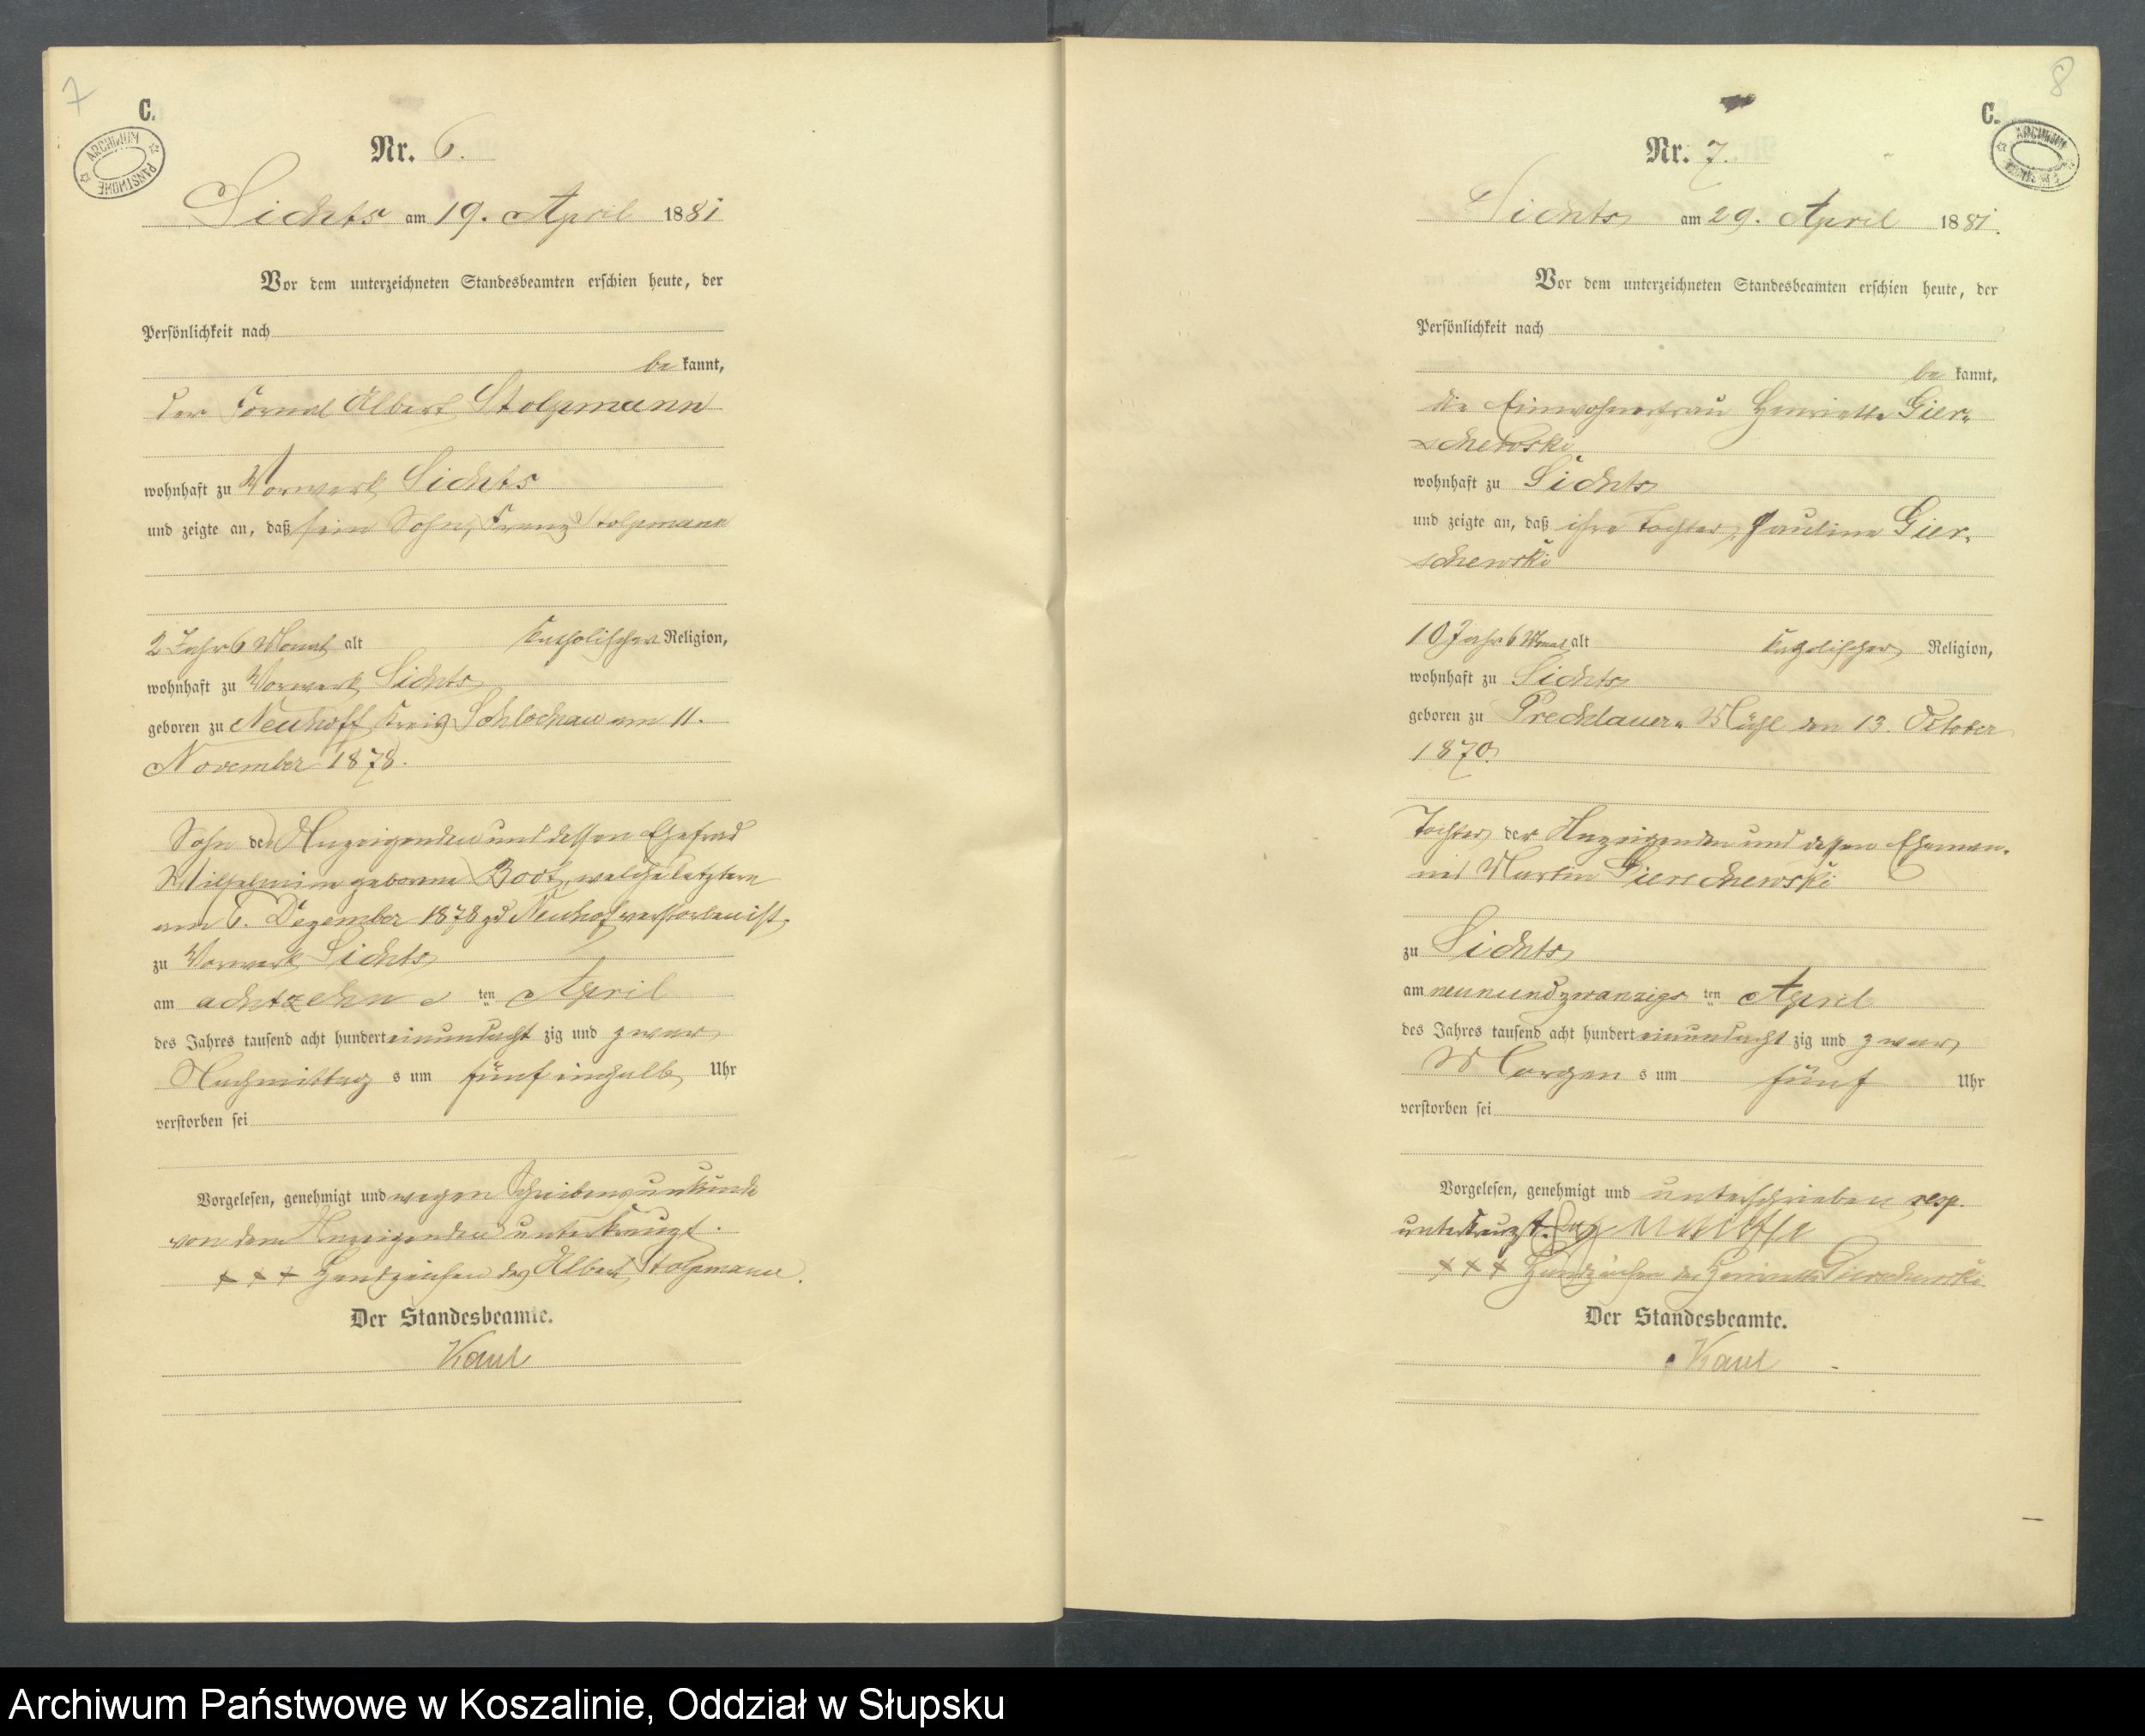 7
C.
ARCHIWUM PAŃSTWOWE
Nr. 6.
Sichts am 19. April 1881
Vor dem unterzeichneten Standesbeamten erschien heute, der
Persönlichkeit nach
be kannt,
der Fornal Albert Stolpmann
wohnhaft zu Vorwerk Sichts
und zeigte an, daß sein Sohn, Franz Stolpmann
2 Jahr 6 Monat alt katholischer Religion,
wohnhaft zu Vorwerk Sichts
geboren zu Neuhoff Kreis Schlochau am 11.
November 1878.
Sohn des Anzeigenden und dessen Ehefrau
Wilhelmine geborne Boot, welche letztere
am 6. Dezember 1878 zu Neuhof verstorben ist,
zu Vorwerk Sichts
am achtzehn ten April
des Jahres tausend acht hundert einundacht zig und zwar
Nachmittag s um fünf einhalb Uhr
verstorben sei
Vorgelesen, genehmigt und wegen Schreibensunkunde
von dem Anzeigenden unterkreuzt.
+ + + Handzeichen des Albert Stolpmann.
Der Standesbeamte.
Kaul
8
C.
ARCHIWUM
Nr. 7.
Sichts am 29. April 1881.
Vor dem unterzeichneten Standesbeamten erschien heute, der
Persönlichkeit nach
be kannt,
die Einwohnerfrau Henriette Gier-
schewski
wohnhaft zu Sichts
und zeigte an, daß ihre Tochter, Pauline Gier-
schewski
10 Jahr 6 Monat alt katholischer Religion,
wohnhaft zu Sichts
geboren zu Prechlauer- Mühl den 13. October
1870.
Tochter der Anzeigenden und dessen Eheman-
nes Martin Gierschewski
zu Sichts
am neunundzwanzigs ten April
des Jahres tausend acht hundert einundacht zig und zwar
Morgen s um fünf Uhr
verstorben sei
Vorgelesen, genehmigt und unterschrieben resp.
unterkreuzt.
+ + + Handzeichen der Henriette Gierschewski
Der Standesbeamte.
Kaul
Archiwum Państwowe w Koszalinie, Oddział w Słupsku